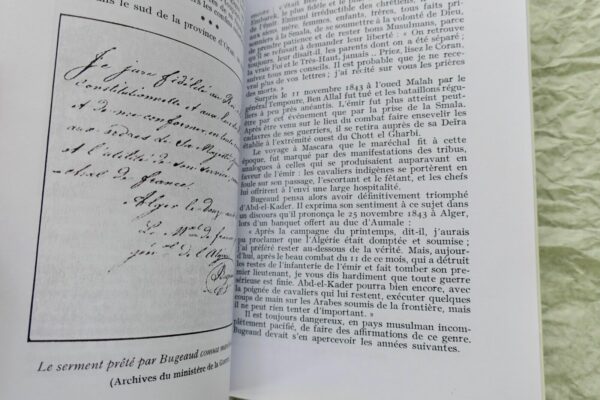 dans le sud de la province d'Oran
* * *
Je jure fidélité au Roi
constitutionnelle et aux lois
et de me conformer en tout
aux ordres de Sa Majesté
et à l'utilité de son service
de france.
Alger le
Le Mal de france
gouv. gal de l'Algérie
Bugeaud
Le serment prêté par Bugeaud comme
(Archives du ministère de la Guerre
Embarek, le
de l'Émir Emment irréductible des chrétiens, il
sens, mère, femmes, enfants, frères, tous faits pri-
sonniers à la Smala, de se soumettre à la volonté de Dieu,
de prendre patience et de rester bons Musulmans, parce
qu'il se refusait à demander leur liberté : « On retrouve
une cuiller, leur disait-il, les parents dont on a été séparé ;
la vraie Foi et le Très-Haut, jamais.. Priez, lisez le Coran,
suivez tous mes conseils. Il est probable que je ne rece-
vrai plus de vos lettres ; j'ai récité sur vous les prières
des morts. »
Surpris le 11 novembre 1843 à l'oued Malah par le
général Tempoure, Ben Allal fut tué et les bataillons régu-
liers à peu près anéantis. L'émir fut plus atteint peut-
être par cet événement que par la prise de la Smala.
Après être venu sur le lieu du combat faire ensevelir les
cadavres de ses guerriers, il se retira auprès de sa Deïra
établie à l'extrémité ouest du Chott el Gharbi.
Le voyage à Mascara que le maréchal fit à cette
époque, fut marqué par des manifestations des tribus,
analogues à celles qui se produisaient auparavant en
l'honneur de l'émir : les cavaliers indigènes se portèrent en
foule sur son passage, l'escortant et le fêtant, et les chefs
lui offrirent à l'envi une large hospitalité.
Bugeaud pensa alors avoir définitivement triomphé
d'Abd-el-Kader. Il exprima son sentiment à ce sujet dans
un discours qu'il prononça le 25 novembre 1843 à Alger,
lors d'un banquet offert au duc d'Aumale :
« Après la campagne du printemps, dit-il, j'aurais
pu proclamer que l'Algérie était domptée et soumise ;
j'ai préféré rester au-dessous de la vérité. Mais, aujour-
d'hui, après le beau combat du 11 de ce mois, qui a détruit
les restes de l'infanterie de l'émir et fait tomber son pre-
mier lieutenant, je vous dis hardiment que toute guerre
sérieuse est finie. Abd-el-Kader pourra bien encore, avec
la poignée de cavaliers qui lui restent, exécuter quelques
coups de main sur les Arabes soumis de la frontière, mais
il ne peut rien tenter d'important. »
Il est toujours dangereux, en pays musulman incom-
plètement pacifié, de faire des affirmations de ce genre.
Bugeaud devait s'en apercevoir les années suivantes.